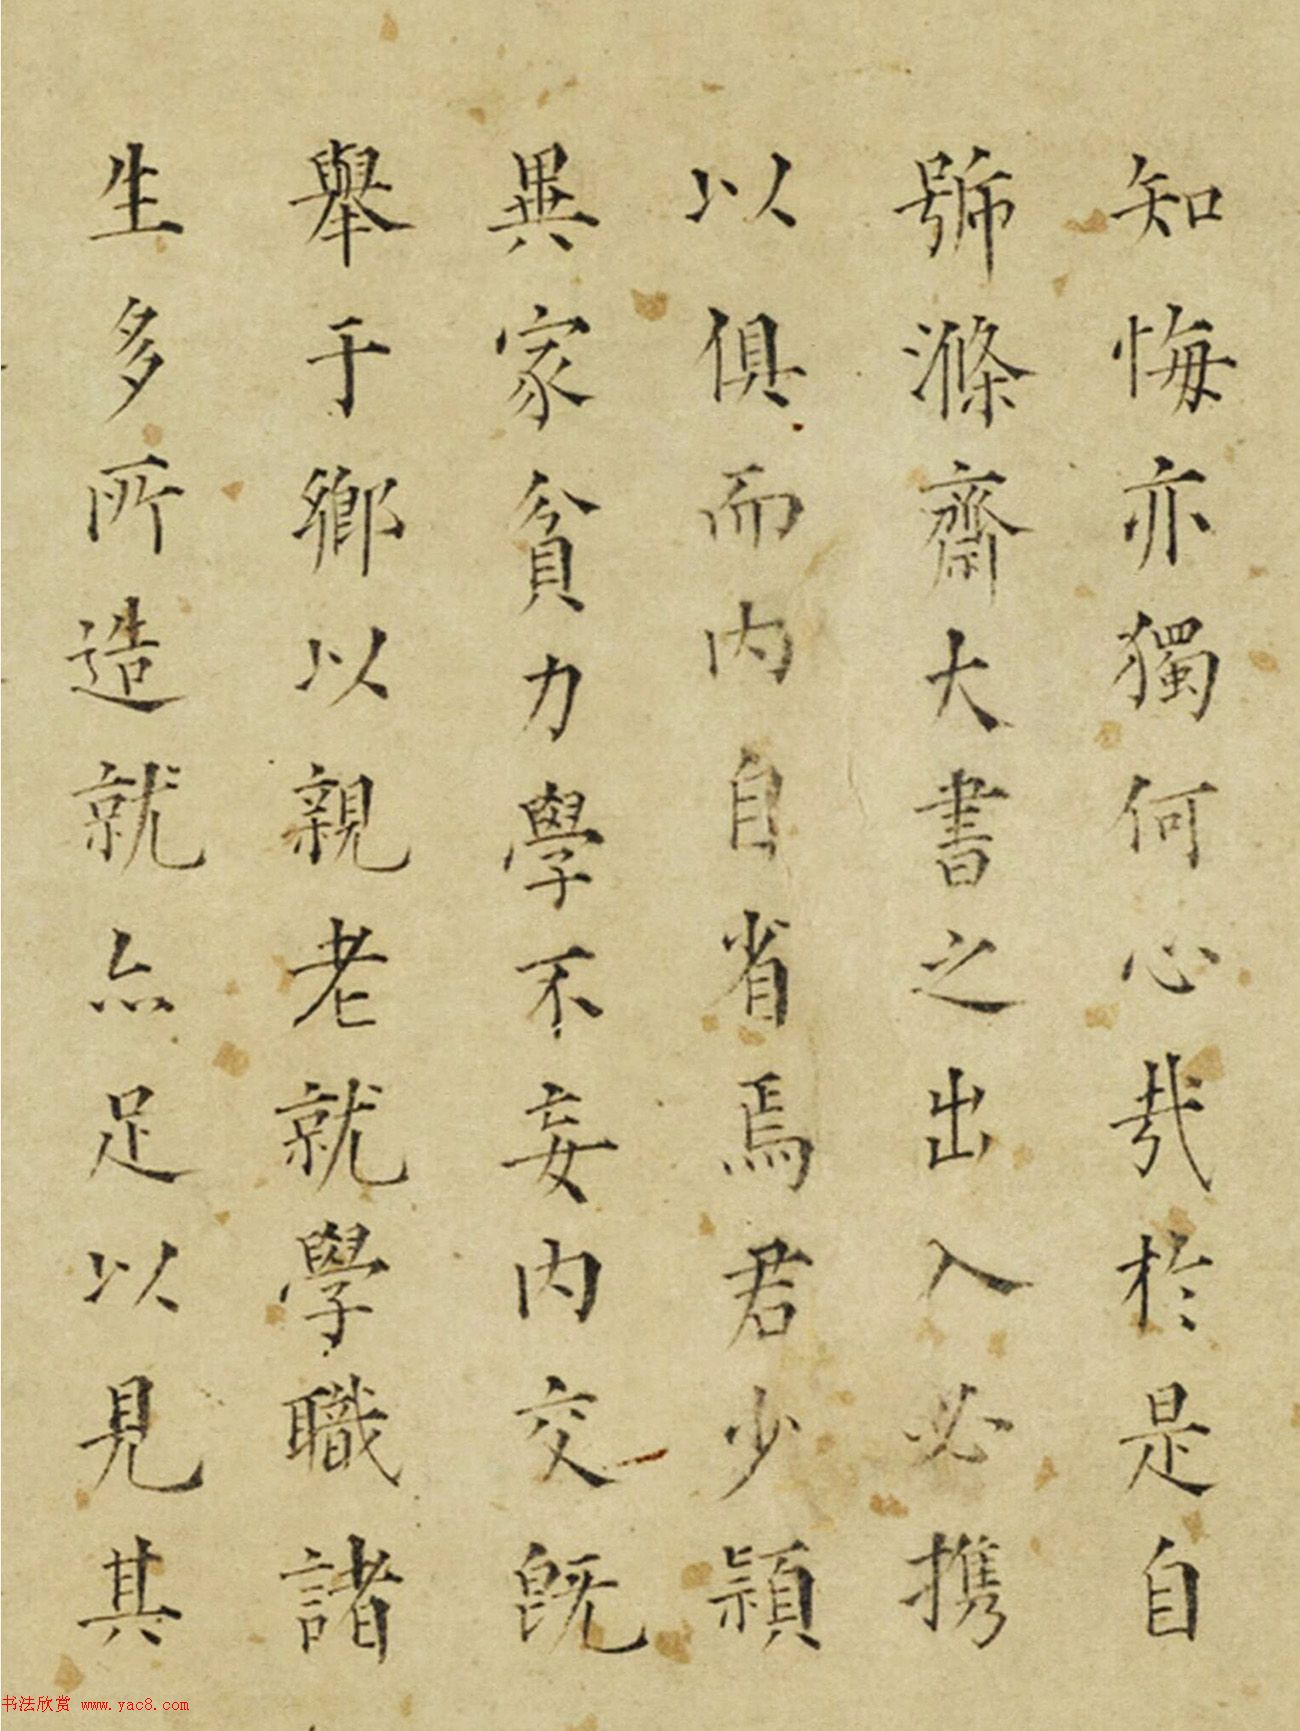 知悔亦獨何心哉於是自
號滌齋大書之出入必携
以俱而內自省焉君少穎
異家貧力學不妄內交既
舉于鄉以親老就學職諸
生多所造就亦足以見其
书法欣赏 www.yac8.com